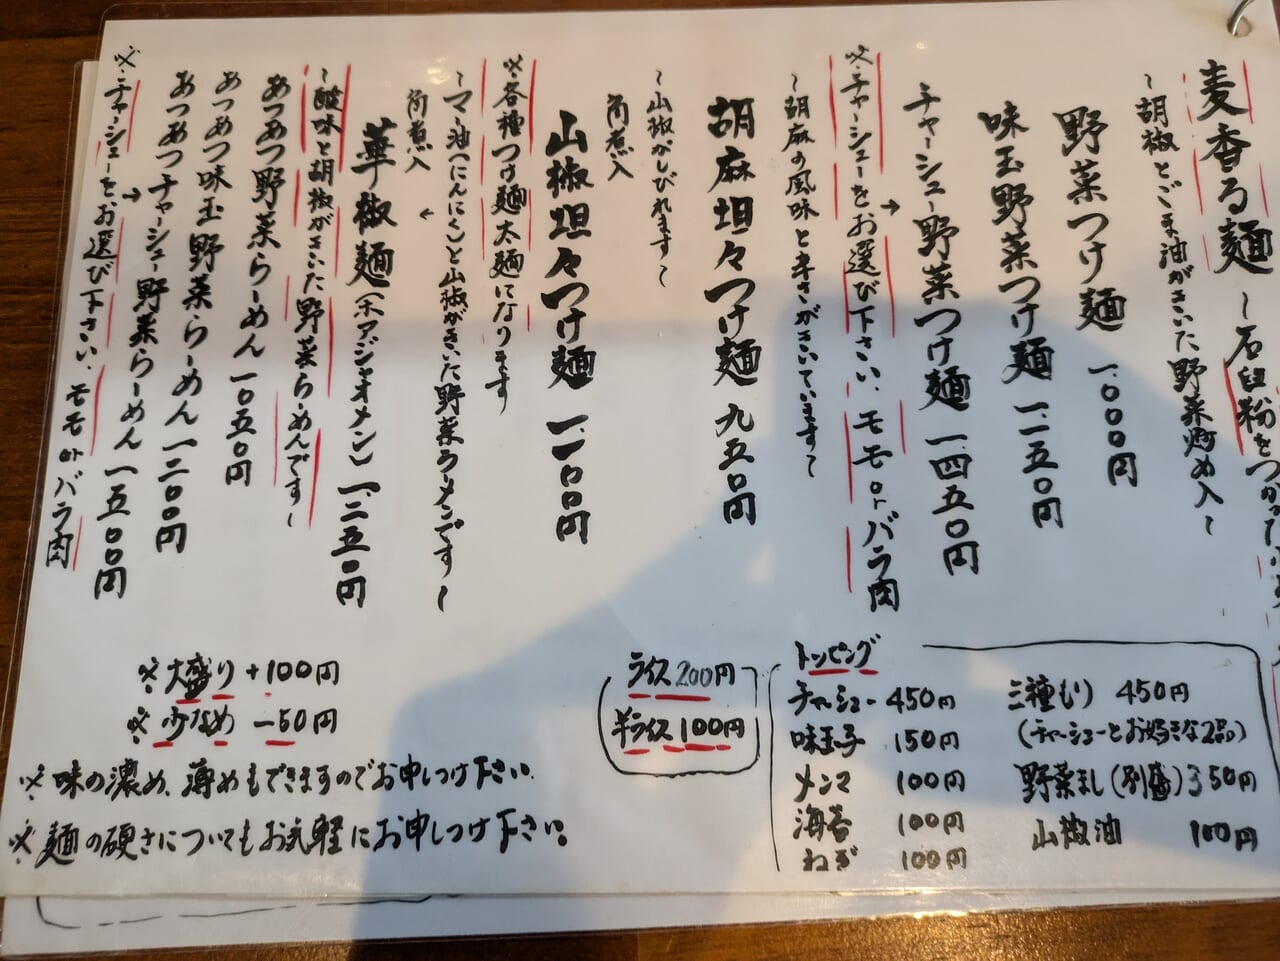 麦香る麺 ~石臼粉をつかった
~胡椒とごま油がきいた野菜炒め入~
野菜つけ麺 一、〇〇〇円
味玉野菜つけ麺 一、一五〇円
チャーシュー野菜つけ麺 一、四五〇円
※チャーシューをお選び下さい、モモorバラ肉
~胡麻の風味と辛さがきいています~
胡麻坦々つけ麺 九五〇円
~山椒がしびれます~
角煮入
山椒坦々つけ麺 一、一〇〇円
※各種つけ麺太麺になります
~マー油(にんにく)と山椒がきいた野菜ラーメンです~
角煮入
華椒麺(ホアジャオメン) 一、二五〇円
~酸味と胡椒がきいた野菜らーめんです~
あつあつ野菜らーめん 一〇五〇円
あつあつ味玉野菜らーめん 一二〇〇円
あつあつチャーシュー野菜らーめん 一五〇〇円
※チャーシューを、お選び下さい、モモorバラ肉
※大盛り+100円
※少なめ -50円
※味の濃め、薄めもできますのでお申しつけ下さい。
※麺の硬さについてもお気軽にお申しつけ下さい。
ライス 200円
半ライス 100円
トッピング
チャーシュー 450円
味玉子 150円
メンマ 100円
海苔 100円
ねぎ 100円
三種もり 450円
(チャーシューとお好きな2品)
野菜まし(別盛) 350円
山椒油 100円